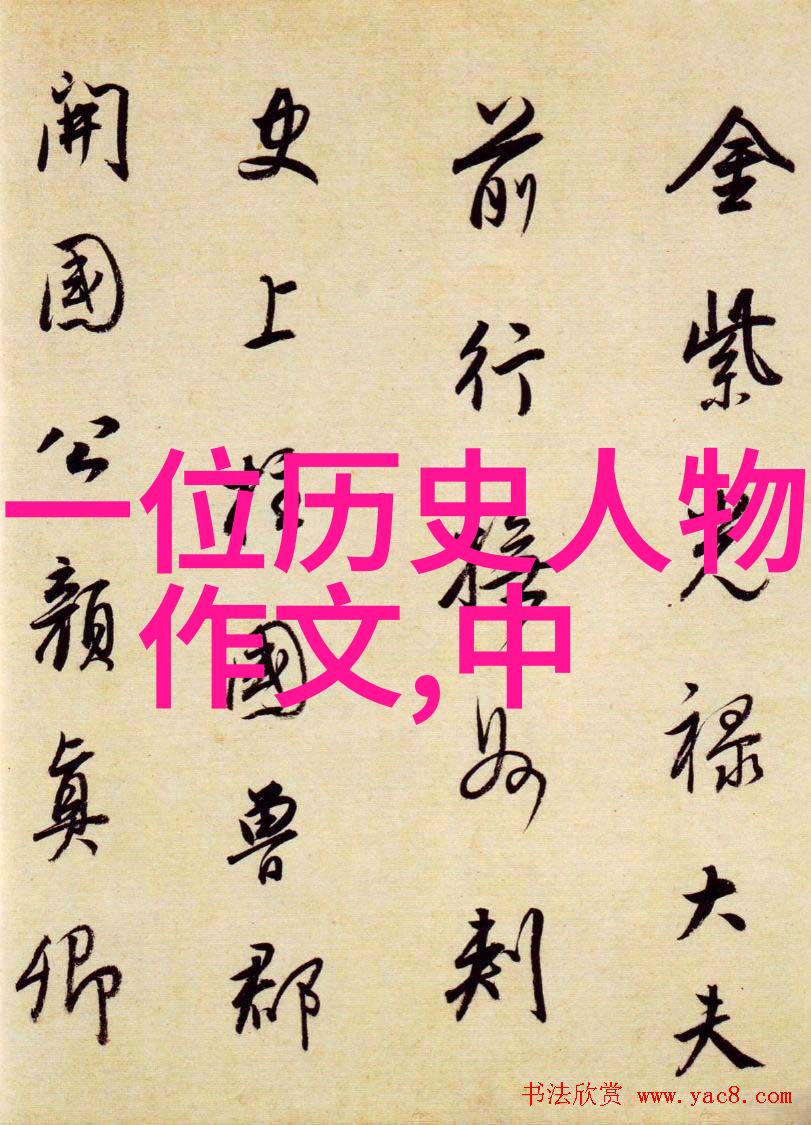 金紫光禄大夫
前行撫州刺
史上柱國魯郡
開國公顏真卿
一位历史人物
作文,中
书法欣赏 www.yac8.com